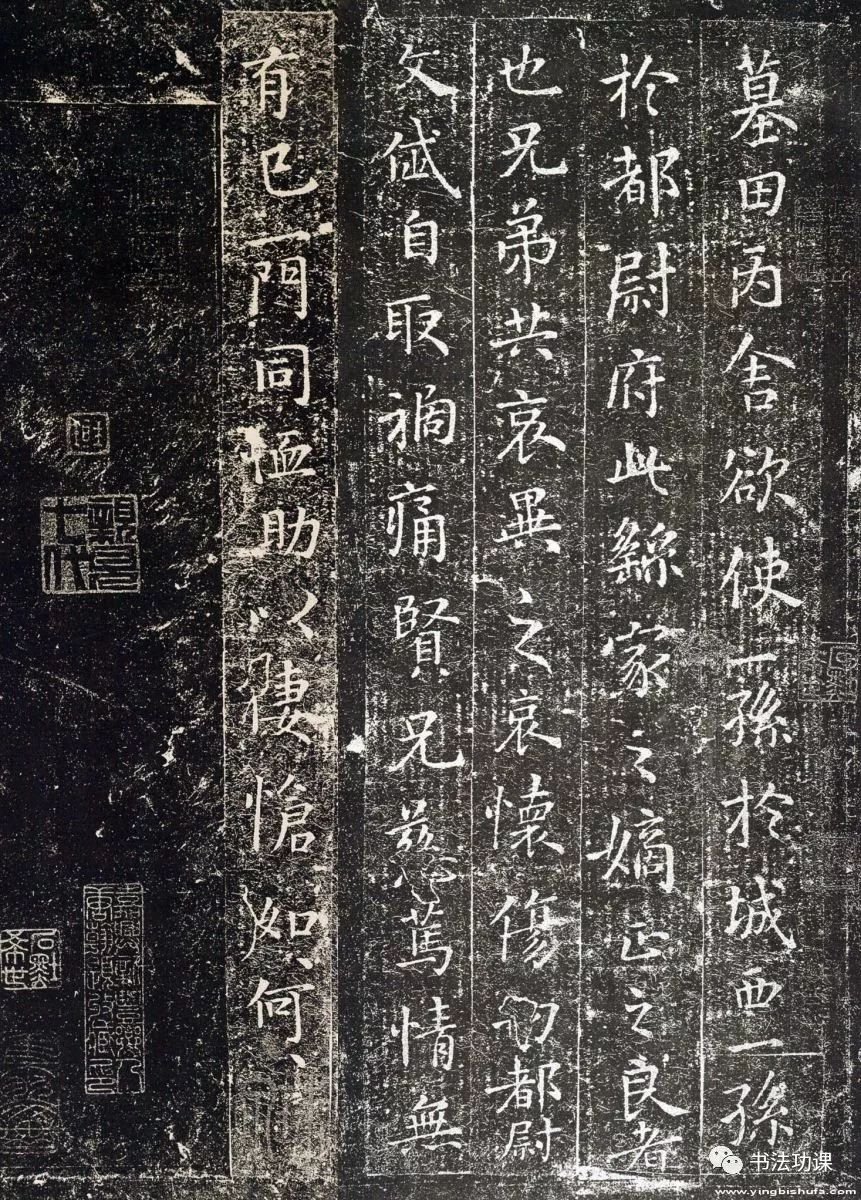 墓田丙舍欲使一孫於城西一孫
於都尉府此繇家之嫡正之良者
也兄弟共哀異之哀懷傷切都尉
文岱自取禍痛賢兄慈篤情無
有已一門同恤助以悽愴如〻何〻
书法功课
www.yingbishufa.com